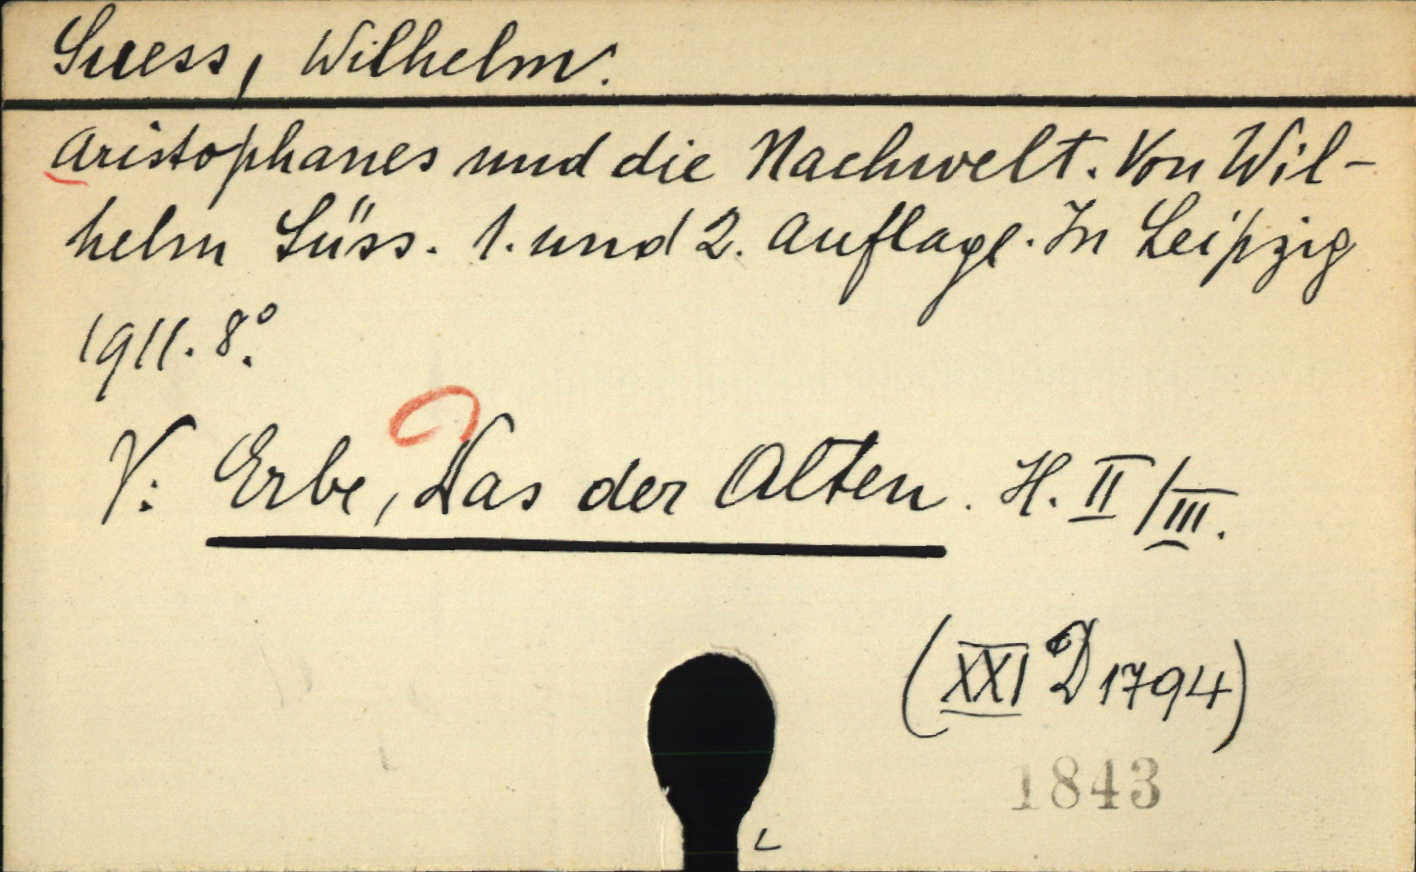 Suess, Wilhelm.
Aristophanes und die Nachwelt. Von Wil-
helm Süss. 1. und 2. Auflage. In Leipzig
1911. 8°.
V: Erbe, Das der Alten. H. II/III.
(XXI D 1794)
1843
L